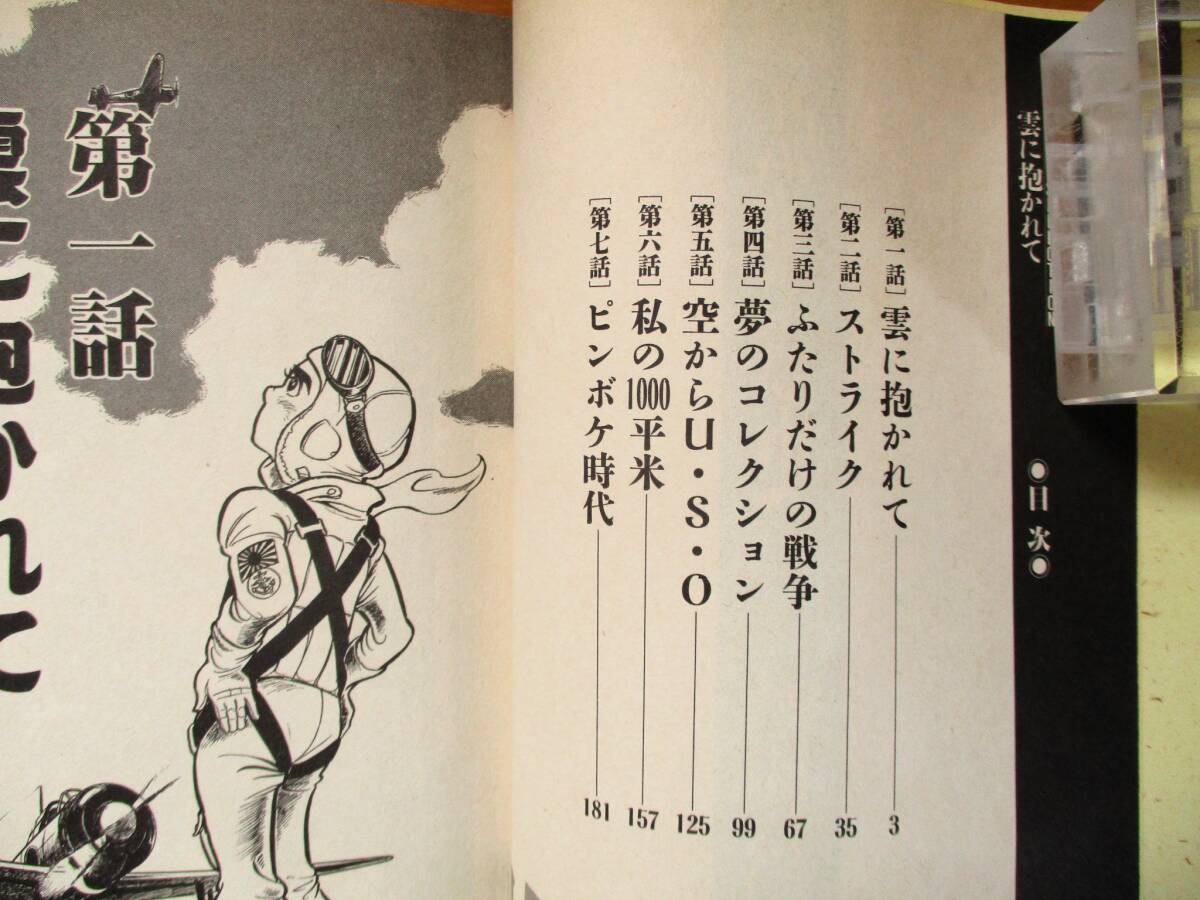 雲に抱かれて
●目次●
[第一話]雲に抱かれて 3
[第二話]ストライク 35
[第三話]ふたりだけの戦争 67
[第四話]夢のコレクション 99
[第五話]空からU・S・O 125
[第六話]私の1000平米 157
[第七話]ピンボケ時代 181
第一話
雲に抱かれて